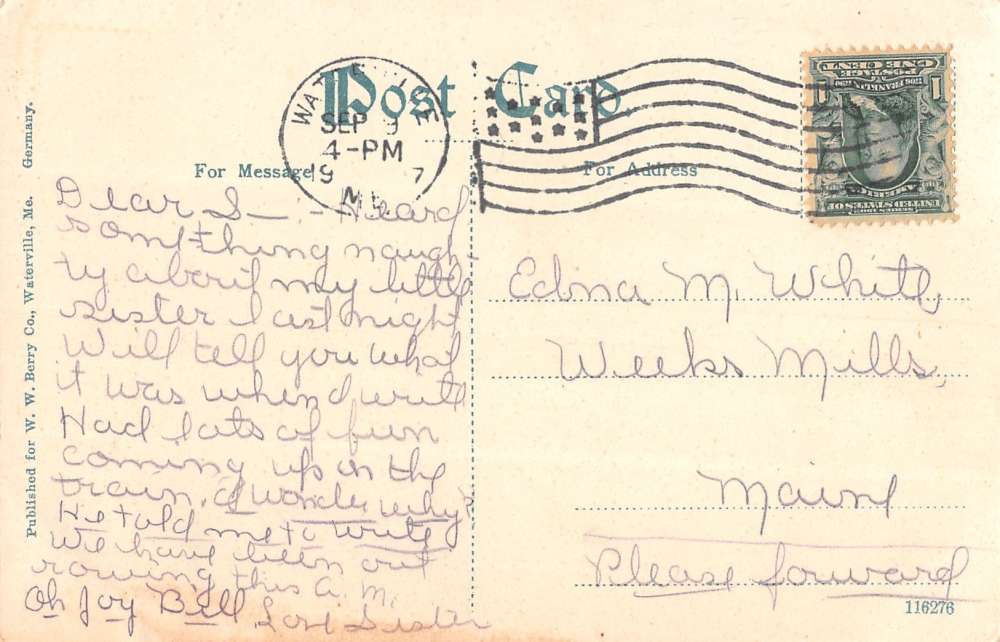 Post Card
For Message
For Address
SEP 9
4-PM
19 7
Published for W. W. Berry Co., Waterville, Me. Germany.
Dear S— - Heard
something naugh
ty about my little
sister last night
Will tell you what
it was when I write
Had lots of fun
coming up on the
train, I wonder why?
He told me to write
We have been out
rowing this A.M.
Oh Joy Bill Love Sister
Edna M. White,
Weeks Mills,
Maine
Please forward
116276
1
POSTAGE
ONE CENT
FRANKLIN
SERIES 1902
UNITED STATES OF
AMERICA